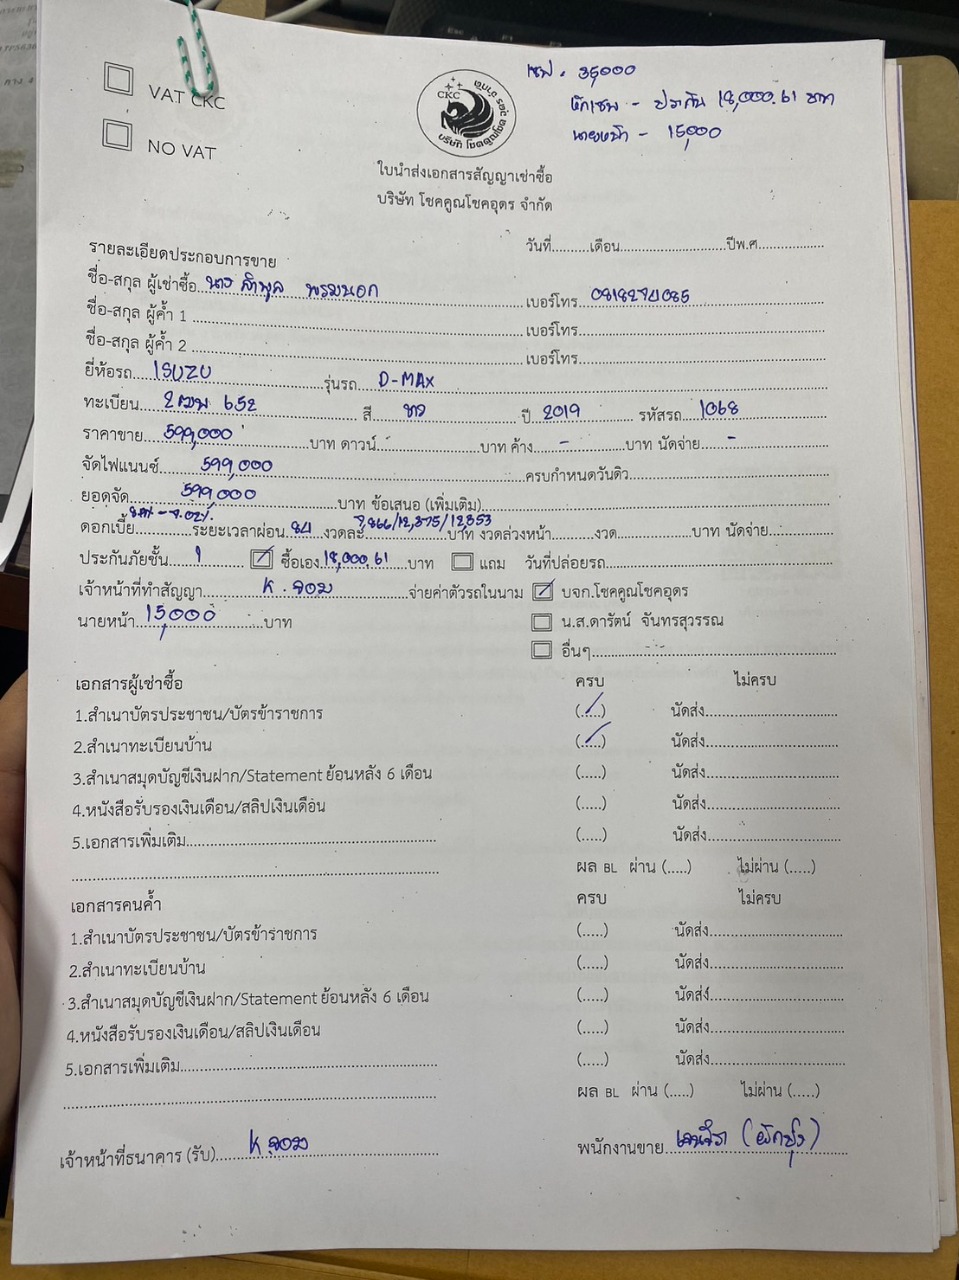 เซฟ - 35,000
VAT CKC
หักเซฟ - ประกัน 18,000.61 บาท
นายหน้า - 15,000
NO VAT
CKC
ใบนำส่งเอกสารสัญญาเช่าซื้อ
บริษัท โชคคูณโชคอุดร จำกัด
วันที่.........เดือน.........................ปีพ.ศ................
รายละเอียดประกอบการขาย
ชื่อ-สกุล ผู้เช่าซื้อ นาง ลำพูล พรมนอก เบอร์โทร 0818274085
ชื่อ-สกุล ผู้ค้ำ 1 เบอร์โทร
ชื่อ-สกุล ผู้ค้ำ 2 เบอร์โทร
ยี่ห้อรถ ISUZU รุ่นรถ D-MAX
ทะเบียน 652 สี ขาว ปี 2019 รหัสรถ 1068
ราคาขาย 599,000 บาท ดาวน์ บาท ค้าง - บาท นัดจ่าย -
จัดไฟแนนซ์ 599,000 ครบกำหนดวันดิว
ยอดจัด 599,000 บาท ข้อเสนอ (เพิ่มเติม)
ดอกเบี้ย ระยะเวลาผ่อน 84 งวดละ 9,866/12,375/12,353 บาท งวดล่วงหน้า งวด บาท นัดจ่าย
ประกันภัยชั้น 1 ซื้อเอง 18,000.61 บาท แถม วันที่ปล่อยรถ
เจ้าหน้าที่ทำสัญญา K. จอม จ่ายค่าตัวรถในนาม บจก.โชคคูณโชคอุดร
นายหน้า 15,000 บาท น.ส.ดารัตน์ จันทรสุวรรณ
อื่นๆ
เอกสารผู้เช่าซื้อ ครบ ไม่ครบ
1.สำเนาบัตรประชาชน/บัตรข้าราชการ (.....) นัดส่ง
2.สำเนาทะเบียนบ้าน (.....) นัดส่ง
3.สำเนาสมุดบัญชีเงินฝาก/Statement ย้อนหลัง 6 เดือน (.....) นัดส่ง
4.หนังสือรับรองเงินเดือน/สลิปเงินเดือน (.....) นัดส่ง
5.เอกสารเพิ่มเติม (.....) นัดส่ง
ผล BL ผ่าน (.....) ไม่ผ่าน (.....)
เอกสารคนค้ำ ครบ ไม่ครบ
1.สำเนาบัตรประชาชน/บัตรข้าราชการ (.....) นัดส่ง
2.สำเนาทะเบียนบ้าน (.....) นัดส่ง
3.สำเนาสมุดบัญชีเงินฝาก/Statement ย้อนหลัง 6 เดือน (.....) นัดส่ง
4.หนังสือรับรองเงินเดือน/สลิปเงินเดือน (.....) นัดส่ง
5.เอกสารเพิ่มเติม (.....) นัดส่ง
ผล BL ผ่าน (.....) ไม่ผ่าน (.....)
เจ้าหน้าที่ธนาคาร (รับ) K.จอม พนักงานขาย